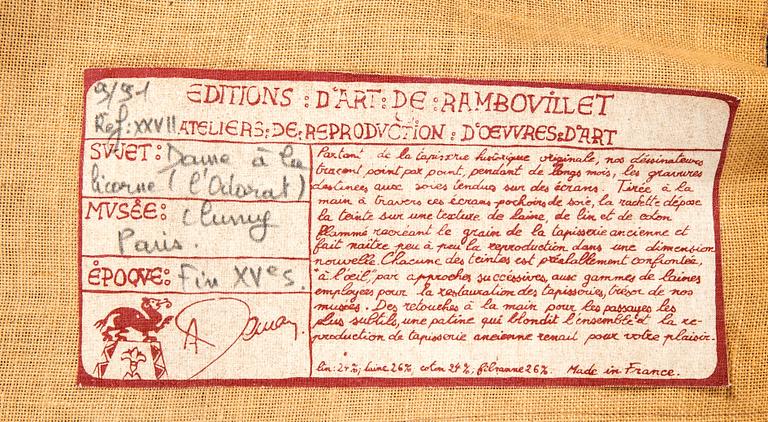 9/91
EDITIONS : D'ART : DE : RAMBOVILLET
Ref: XXVII ATELIERS : DE : REPRODVCTION : D'OEVVRES : D'ART
SVJET : Dame à la
licorne (l'Odorat)
MVSÉE : Cluny
Paris.
ÉPOQVE : Fin XVe s.
Partant de la tapisserie historique originale, nos déssinateurs
tracent point par point, pendant de longs mois, les gravures
destinées aux soies tendues sur des écrans. Tirée à la
main à travers ces écrans pochoirs de soie, la raclette dépose
la teinte sur une texture de laine, de lin et de coton
flammé recréant le grain de la tapisserie ancienne et
fait naître peu à peu la reproduction dans une dimension
nouvelle. Chacune des teintes est préalablement confrontée,
"à l'œil", par approches successives, aux gammes de laines
employées pour la restauration des tapisseries, trésor de nos
musées. Des retouches à la main pour les passages les
plus subtils, une patine qui blondit l'ensemble et la re-
production de tapisserie ancienne renait pour votre plaisir.
lin: 24%; laine 26%, coton 24%, fibranne 26%. Made in France.